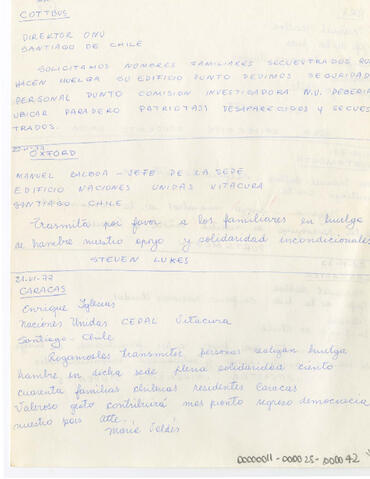 COTTBUS
DIREKTOR ONU
SANTIAGO DE CHILE
SOLICITAMOS NOMBRES FAMILIARES SECUESTRADOS QUE
HACEN HUELGA SU EDIFICIO PUNTO PEDIMOS SEGURIDAD
PERSONAL PUNTO COMISION INVESTIGADORA N.U. DEBERIA
UBICAR PARADERO PATRIOTAS DESAPARECIDOS Y SECUES
TRADOS.
OXFORD
MANUEL BALBOA - JEFE DE LA SEDE
EDIFICIO NACIONES UNIDAS VITACURA
SANTIAGO - CHILE
Trasmita por favor a los familiares en huelga
de hambre nuestro apoyo y solidaridad incondicionales
STEVEN LUKES
21-VI-77
CARACAS
Enrique Iglesias
Naciones Unidas CEPAL Vitacura
Santiago - Chile
Rogamosles transmitir personas realizan huelga
hambre en dicha sede plena solidaridad ciento
cuarenta familias chilenas residentes Caracas
Valeroso gesto contribuirá mas pronto regreso democracia
nuestro pais atte.
María Valdés
0000011-000025-000042